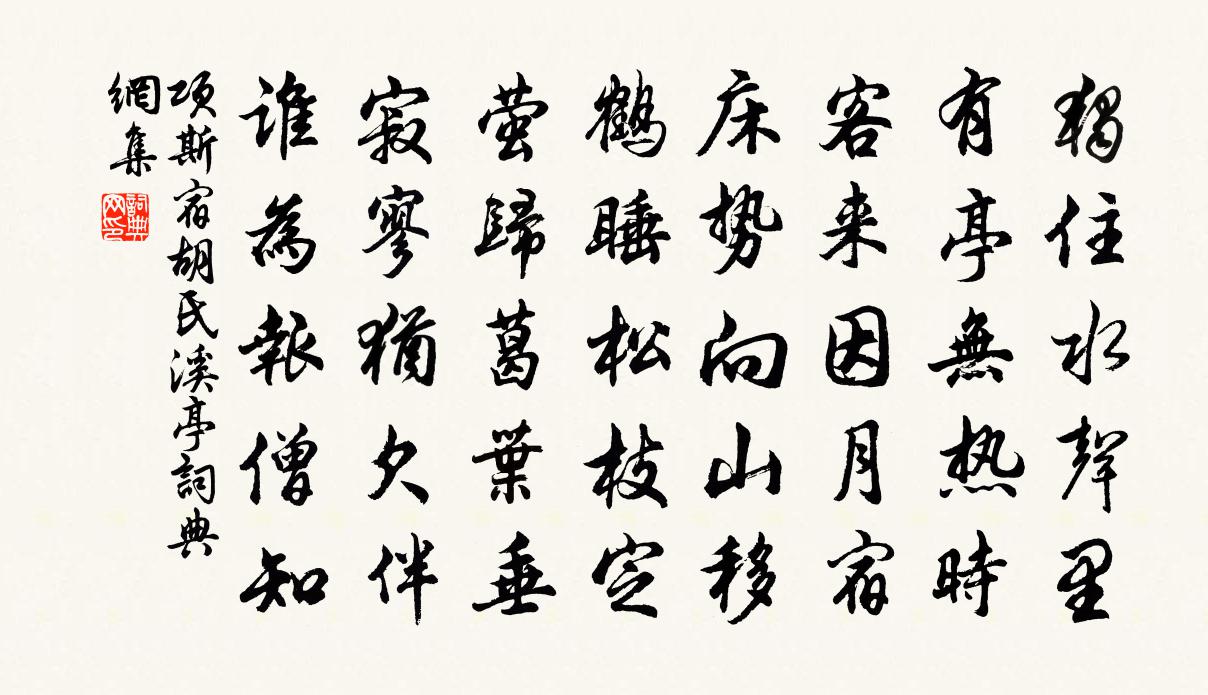 獨住水聲里
有亭無热時
客来因月宿
床势向山移
鶴睡松枝定
萤歸葛葉垂
寂寥犹欠伴
谁為報僧知
項斯宿胡氏溪亭詞典
網集
詞典网印